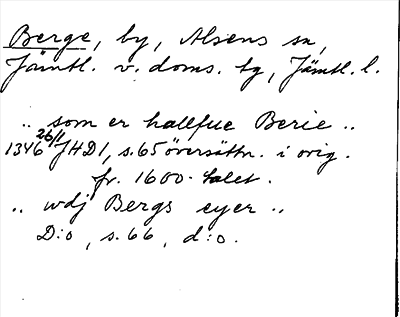 Berge, by, Alsens sn,
Jämtl. v. doms. tg, Jämtl. l.
.. som er hallfue Berie ..
1346 26/1 JHD1, s. 65 översättn. i orig.
fr. 1600-talet.
.. wdj Bergs eyer ..
D:o, s. 66, d:o.